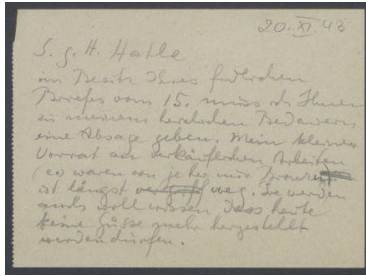 20. XI. 43
S. g. H. Hatle
im Besitz Ihres freundlichen
Briefes vom 15. muss ich Ihnen
zu meinem herzlichen Bedauern
eine Absage geben. Mein kleiner
Vorrat an verkäuflichen Arbeiten
(es waren von jeher nur Bronzen
ist längst weg. Sie werden
auch wohl wissen dass heute
keine Güsse mehr hergestellt
werden dürfen.